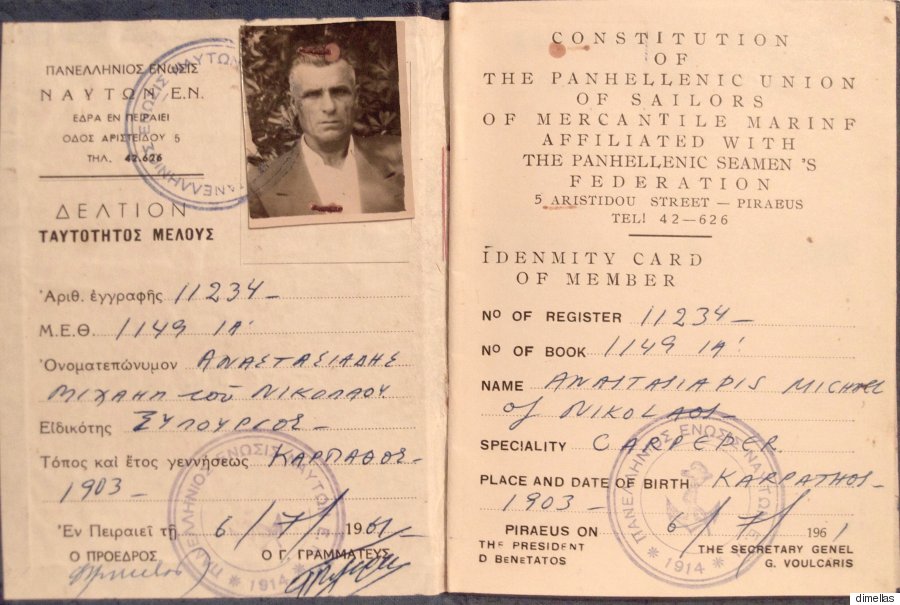 ΠΑΝΕΛΛΗΝΙΟΣ ΕΝΩΣΙΣ
ΝΑΥΤΩΝ Ε.Ν.
ΕΔΡΑ ΕΝ ΠΕΙΡΑΙΕΙ
ΟΔΟΣ ΑΡΙΣΤΕΙΔΟΥ 5
ΤΗΛ. 42.626
ΔΕΛΤΙΟΝ
ΤΑΥΤΟΤΗΤΟΣ ΜΕΛΟΥΣ
Ἀριθ. ἐγγραφῆς 11234 –
Μ.Ε.Θ. 1149 ΙΑ'
Ὀνοματεπώνυμον ΑΝΑΣΤΑΣΙΑΔΗΣ
ΜΙΧΑΗΛ τοῦ ΝΙΚΟΛΑΟΥ
Εἰδικότης ΞΥΛΟΥΡΓΟΣ –
Τόπος καὶ ἔτος γεννήσεως ΚΑΡΠΑΘΟΣ –
1903 –
Ἐν Πειραιεῖ τῇ 6/7/1961
Ο ΠΡΟΕΔΡΟΣ Ο Γ. ΓΡΑΜΜΑΤΕΥΣ
ΠΑΝΕΛΛΗΝΙΟΣ ΕΝΩΣΙΣ ΝΑΥΤΩΝ
ΠΑΝΕΛΛΗΝΙΟΣ ΕΝΩΣΙΣ ΝΑΥΤΩΝ Ε.
* 1914 *
CONSTITUTION
OF
THE PANHELLENIC UNION
OF SAILORS
OF MERCANTILE MARINF
AFFILIATED WITH
THE PANHELLENIC SEAMEN 'S
FEDERATION
5 ARISTIDOU STREET — PIRAEUS
TEL! 42—626
IDENMITY CARD
OF MEMBER
Nº OF REGISTER 11234 –
Nº OF BOOK 1149 ΙΑ'
NAME ANASTASIADIS MICHAEL
of NIKOLAOS
SPECIALITY CARPEDER
PLACE AND DATE OF BIRTH KARPATHOS –
1903 –
PIRAEUS ON 6/7/1961
THE PRESIDENT THE SECRETARY GENEL
D BENETATOS G. VOULCARIS
ΠΑΝΕΛΛΗΝΙΟΣ ΕΝΩΣΙΣ ΝΑΥΤΩΝ
* 1914 *
dimellas